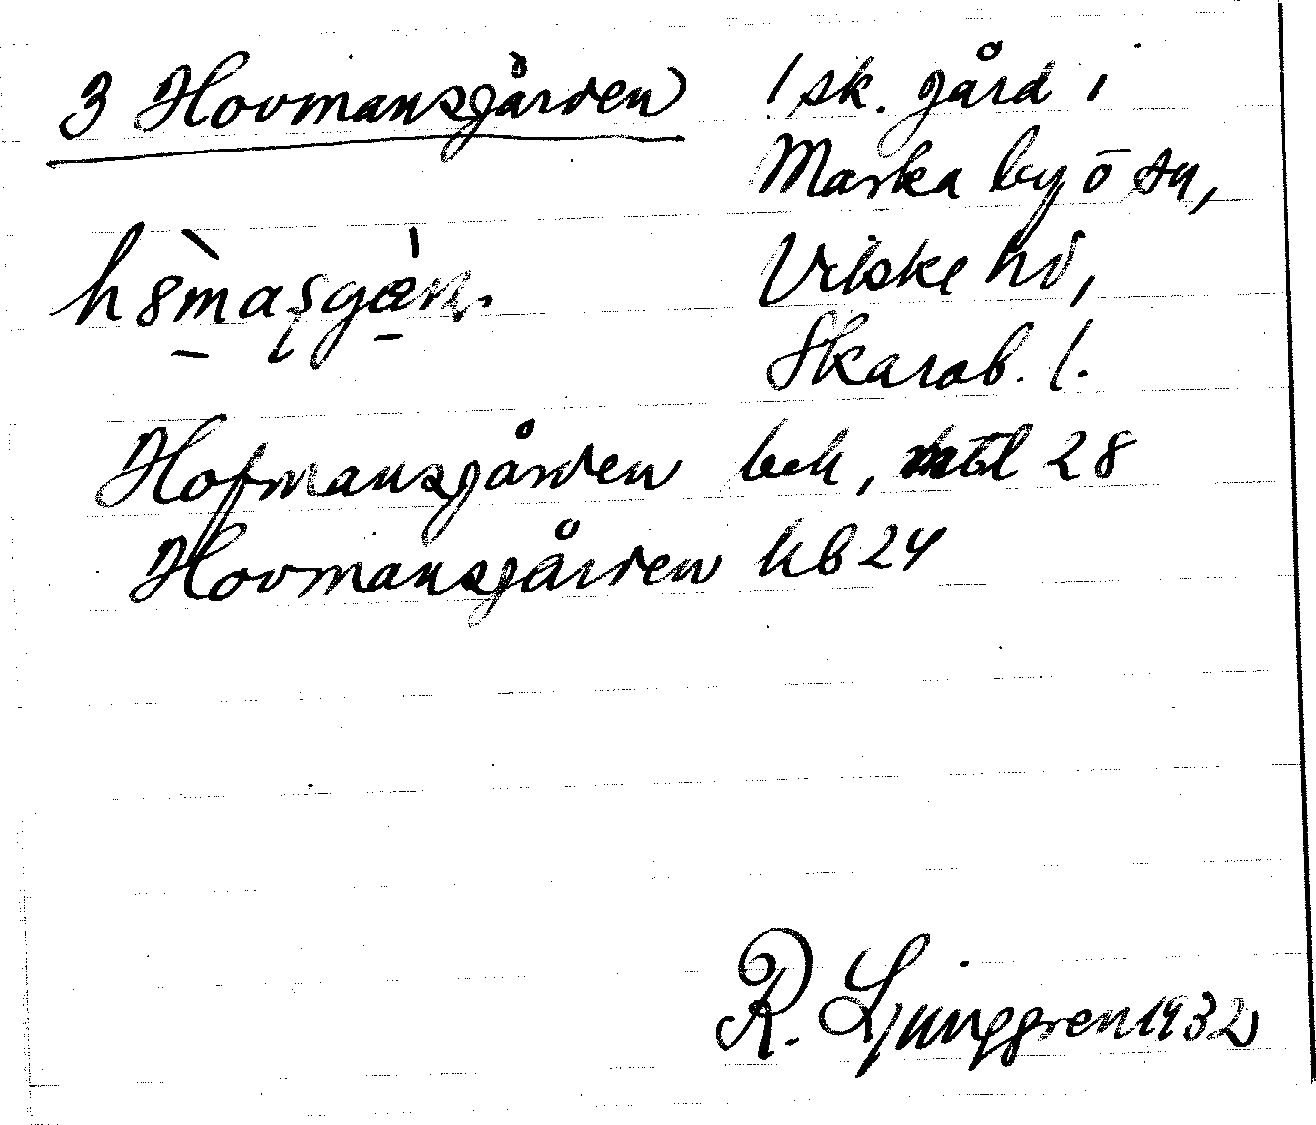 3 Hovmansgården
1 sk. gård i
Marka by o sn,
Vilske hd,
Skarab. l.
Hofmansgården bch, 28
Hovmansgården kb 24
R. Ljunggren 1932